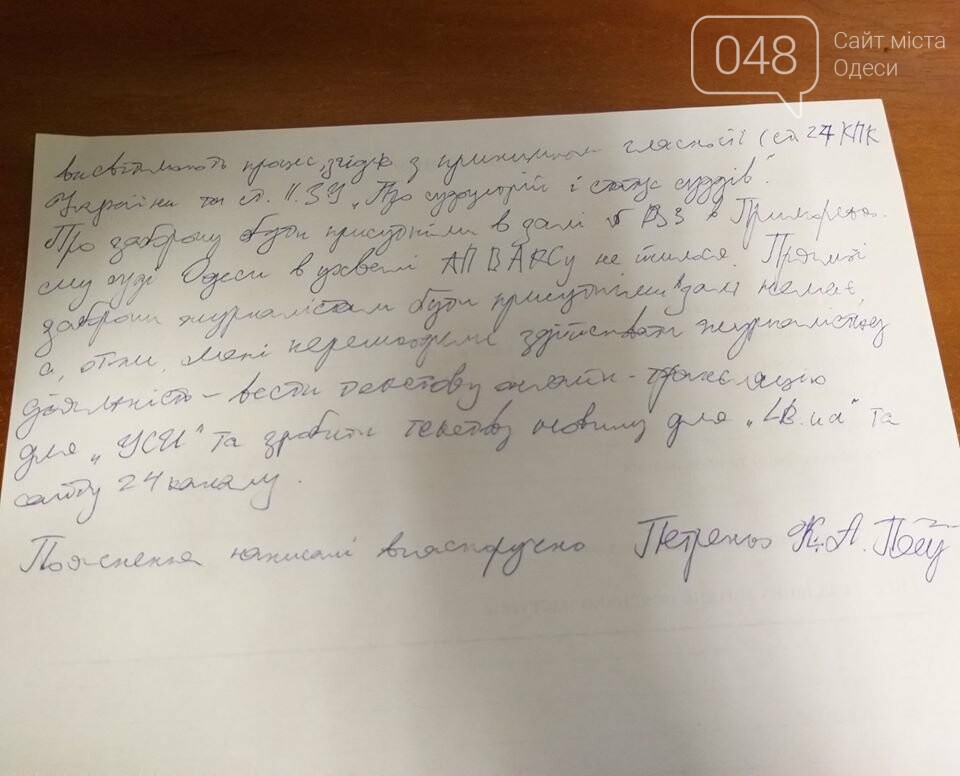 048
Сайт міста
Одеси
висвітлюють процес, згідно з принципом гласності (ст 27 КПК
України та ст. 11 ЗУ „Про судоустрій і статус суддів".
Про заборону бути присутніми в залі ВЗ в Приморсько-
му суді Одеси в ухвалі АП ВАКСу не йшлося. Прямої
заборони журналістам бути присутніми в залі немає,
а, отже, мені перешкодили здійснювати журналістську
діяльність – вести текстову онлайн-трансляцію
для „УСИ" та зробити текстову новину для „LB.ua" та
сайту 24 каналу.
Пояснення написані власноручно Петренко К.А.